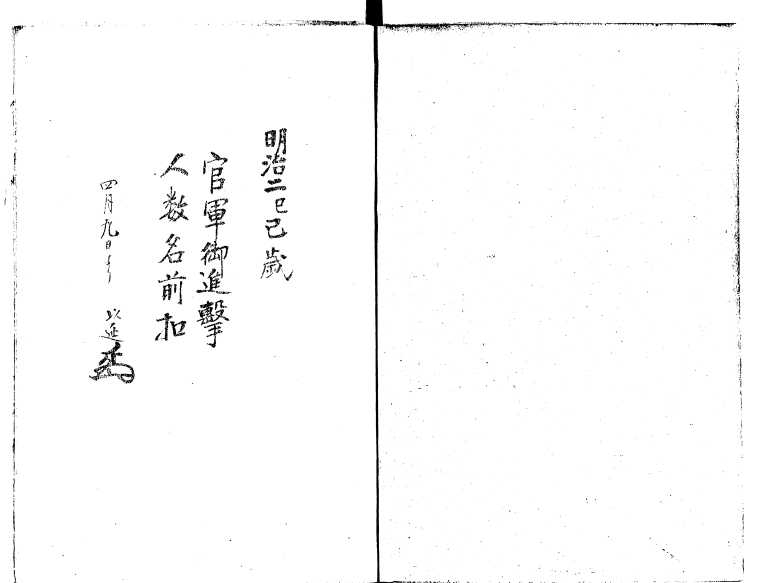 明治二己巳歳
官軍御進撃
人数名前扣
四月九日